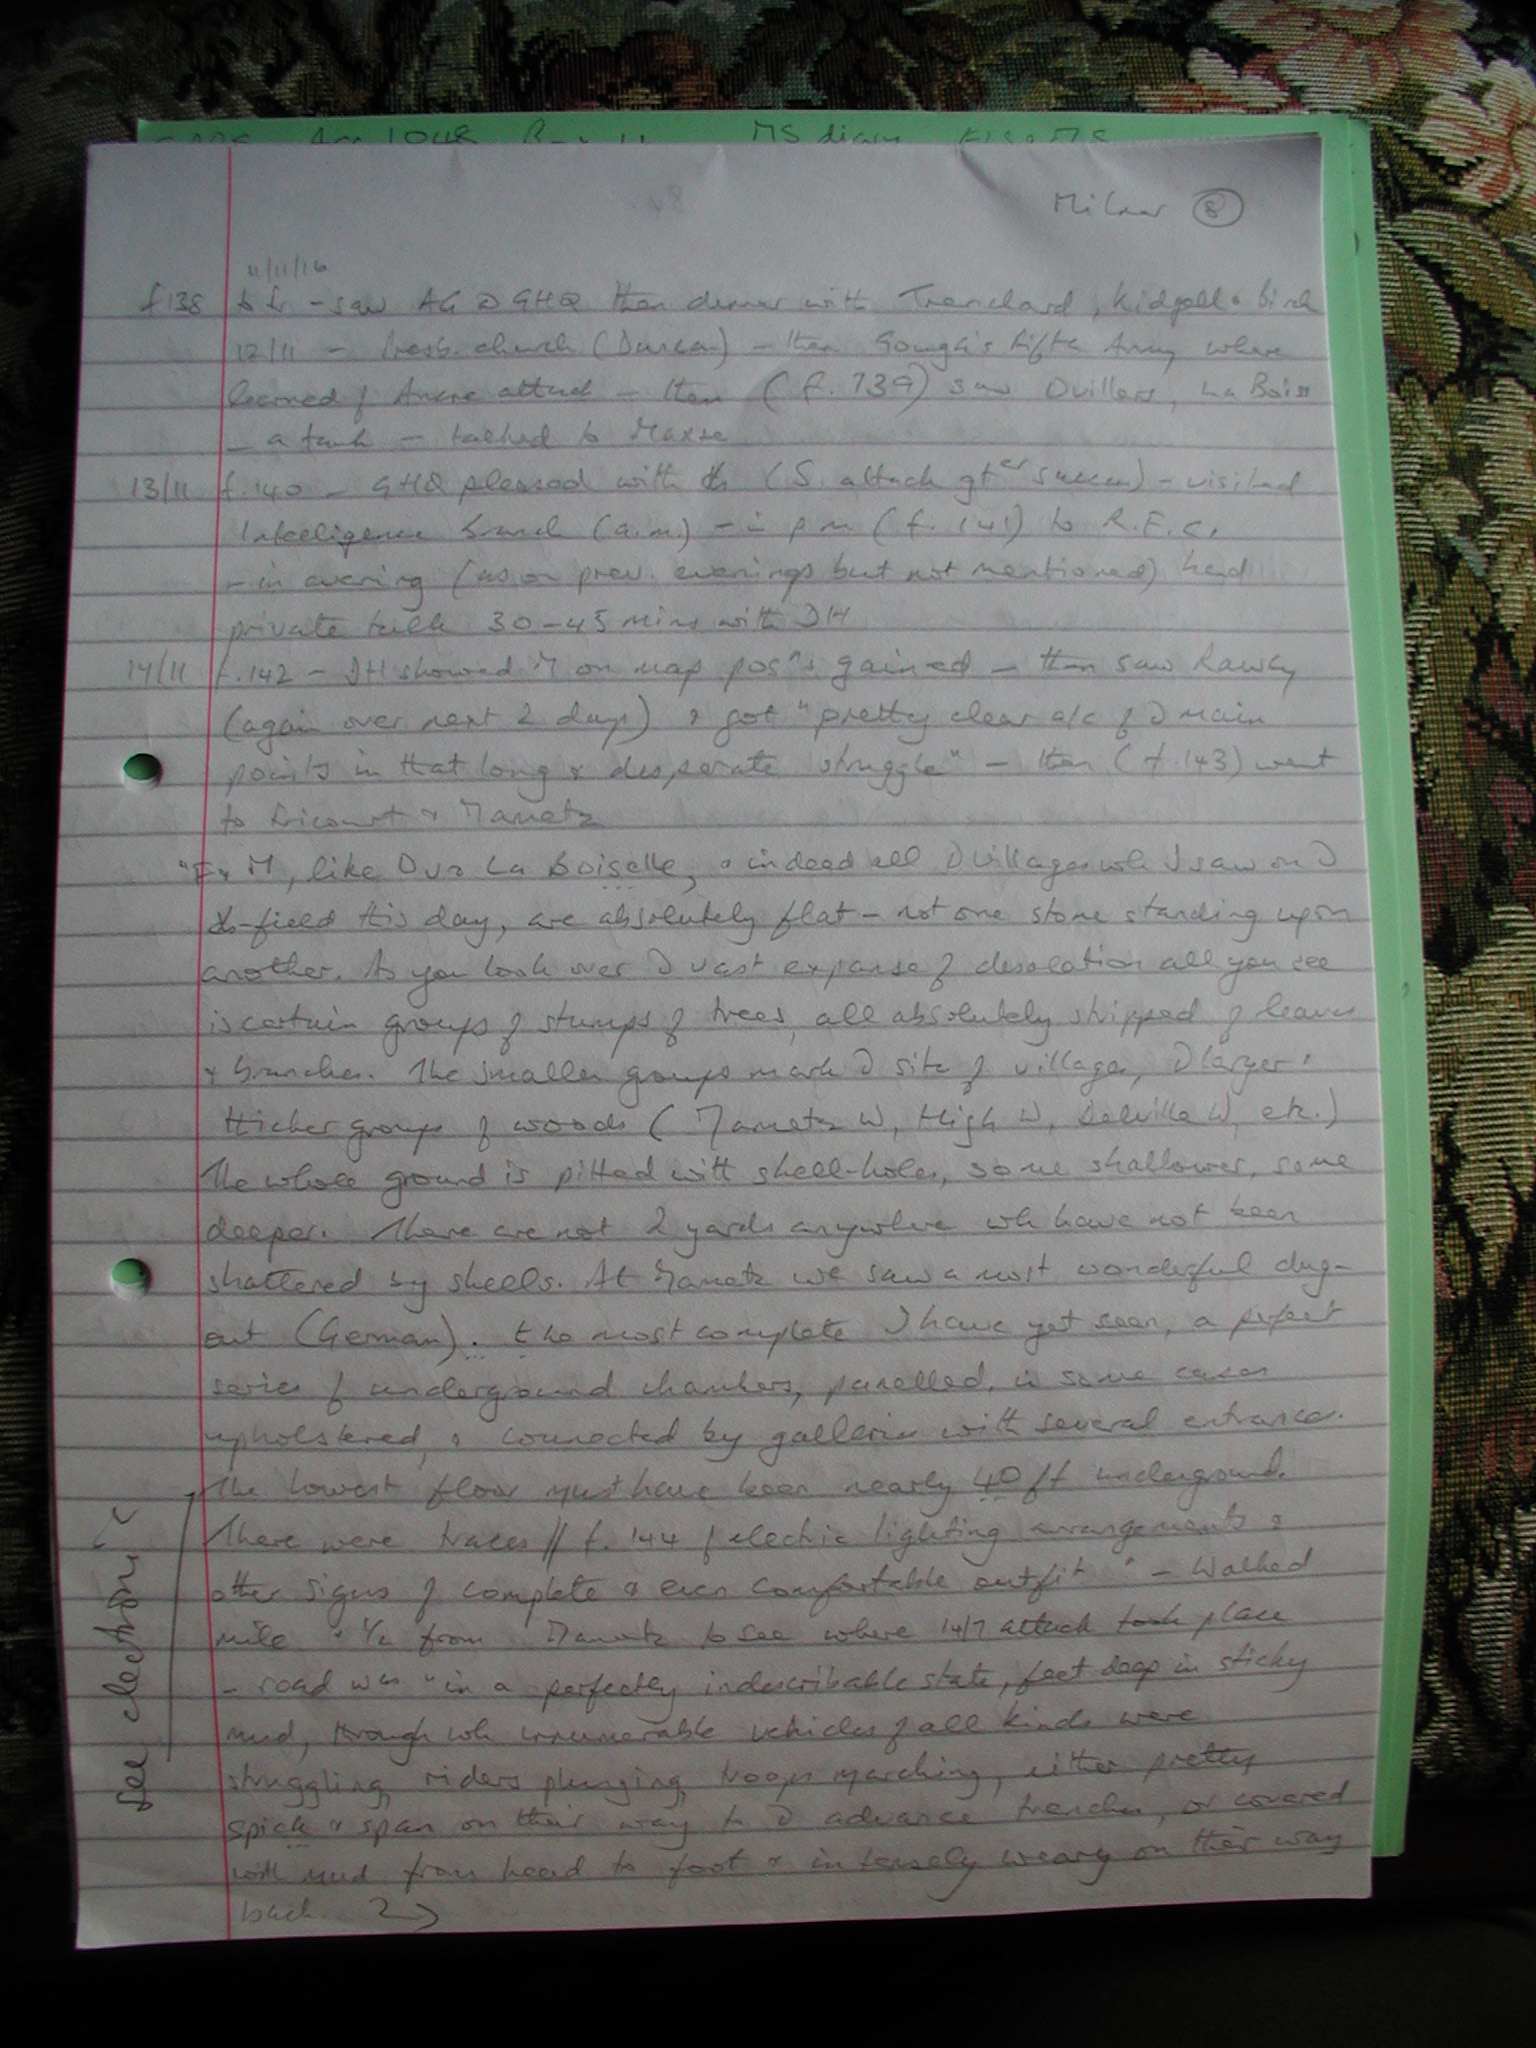 MS diary
Milner 8
11/11/16
f138 to Fr - saw AG @ GHQ then dinner with Trenchard, Kidgell & Birch
12/11 - Presb. church (Duncan) - then Gough's Fifth Army where
learned of Ancre attack - then (f. 139) saw Ovillers, La Boiss
- a tank - talked to Maxse
13/11 f.140 - GHQ pleased with (S. attack gt er success) - visited
Intelligence branch (a.m.) - in p m (f. 141) to R.F.C.
- in evening (as on prev. evenings but not mentioned) had
private talk 30-45 mins with DH
14/11 f.142 - DH showed M on map posns gained - then saw Rawly
(again over next 2 days) & got "pretty clear a/c of main
points in that long & desperate struggle" - then (f.143) went
to Fricourt & Mametz
"F & M, like Ov & La Boiselle, & indeed all villages wh I saw on
-field this day, are absolutely flat - not one stone standing upon
another. As you look over vast expanse of desolation all you see
is certain groups of stumps of trees, all absolutely stripped of leaves
& branches. The smaller groups mark site of villages, larger &
thicker groups of woods (Mametz W, High W, Delville W, etc.)
The whole ground is pitted with shell-holes, some shallower, some
deeper. There are not 2 yards anywhere wh have not been
shattered by shells. At Mametz we saw a most wonderful dug-
out (German). the most complete I have yet seen, a perfect
series of underground chambers, panelled, in some cases
upholstered, & connected by galleries with several entrances.
The lowest floor must have been nearly 40 ft underground.
There were traces // f. 144 of electric lighting arrangements &
other signs of complete & even comfortable outfit" - Walked
mile & 1/2 from Mametz to see where 14/7 attack took place
- road was "in a perfectly indescribable state, feet deep in sticky
mud, through wh innumerable vehicles of all kinds were
struggling, riders plunging, troops marching, either pretty
spick & span on their way to advance trenches, or covered
with mud from head to foot & intensely weary on their way
back.
See electronic